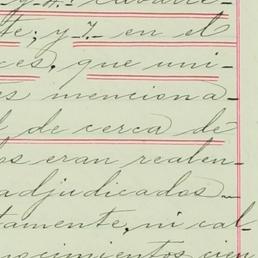 te; y 7. en el
ces, que uni-
es menciona-
l de cerca de
os eran realen-
adjudicados
tamente, ni cal-
nocimientos cien